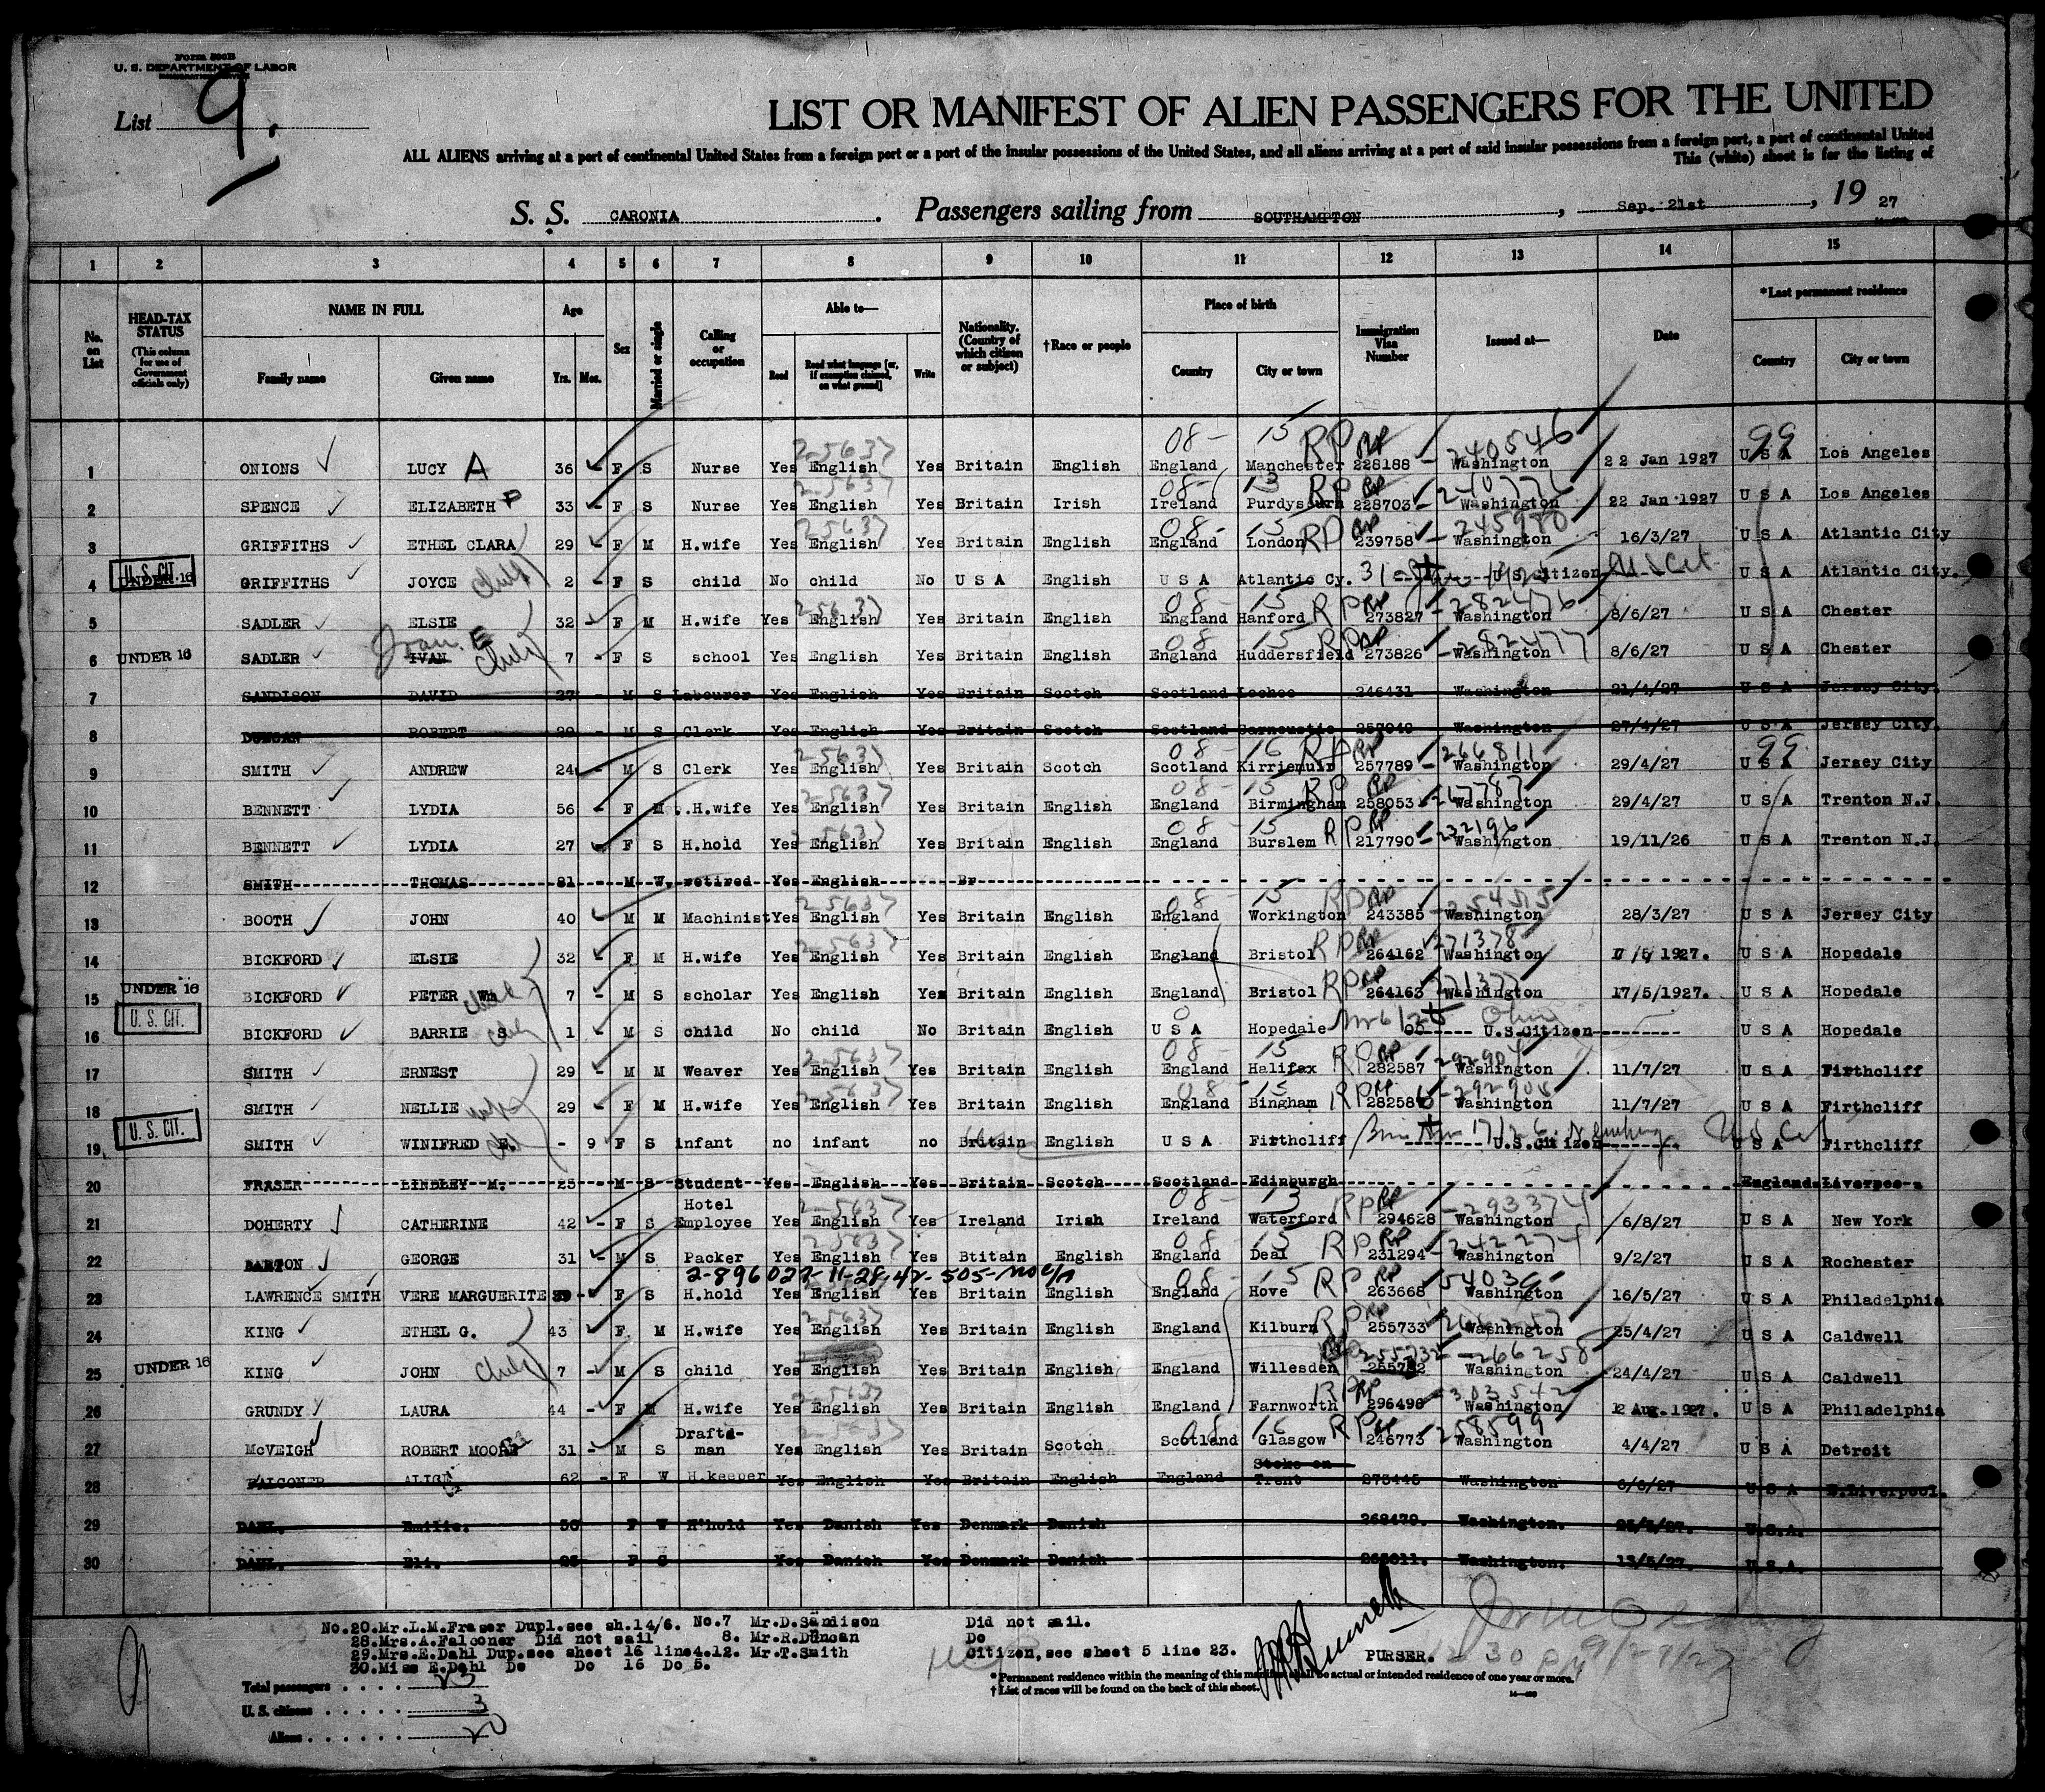 Form 500B
U. S. DEPARTMENT OF LABOR
List 9.
LIST OR MANIFEST OF ALIEN PASSENGERS FOR THE UNITED
ALL ALIENS arriving at a port of continental United States from a foreign port or a port of the insular possessions of the United States, and all aliens arriving at a port of said insular possessions from a foreign port, a part of continental United
This (white) sheet is for the listing of
S. S. CARONIA . Passengers sailing from SOUTHAMPTON , Sep. 21st , 19 27
1 2 3 4 5 6 7 8 9 10 11 12 13 14 15
No. on List HEAD-TAX STATUS (This column for use of Government officials only) NAME IN FULL Family name Given name Age Yrs. Mos. Sex Married or single Calling or occupation Able to— Read Read what language [or, if exemption claimed, on what ground] Write Nationality. (Country of which citizen or subject) †Race or people Place of birth Country City or town Immigration Visa Number Issued at— Date *Last permanent residence Country City or town
08- 15 RP 240546 99
1 ONIONS LUCY A 36 - F S Nurse Yes English Yes Britain English England Manchester 228188 - Washington 22 Jan 1927 U S A Los Angeles
2 SPENCE ELIZABETH P 33 - F S Nurse Yes English Yes Britain Irish Ireland Purdysburn 228703 Washington 22 Jan 1927 U S A Los Angeles
3 GRIFFITHS ETHEL CLARA 29 - F M H.wife Yes English Yes Britain English England London 239758 - 245980 Washington 16/3/27 U S A Atlantic City
4 U.S. CIT. UNDER 16 GRIFFITHS JOYCE child 2 - F S child No child No U S A English U S A Atlantic Cy. U.S. Citizen US Cit. U S A Atlantic City.
5 SADLER ELSIE 32 - F M H.wife Yes English Yes Britain English England Hanford 273827 - 282476 Washington 8/6/27 U S A Chester
6 UNDER 16 SADLER IVAN Joan. E child 7 - F S school Yes English Yes Britain English England Huddersfield 273826 - 282477 Washington 8/6/27 U S A Chester
7 SANDISON DAVID 27 - M S Labourer Yes English Yes Britain Scotch Scotland Lochee 246431 Washington 21/4/27 U S A Jersey City.
8 DUNCAN ROBERT 29 - M S Clerk Yes English Yes Britain Scotch Scotland Carnoustie 257049 Washington 27/4/27 U S A Jersey City.
9 SMITH ANDREW 24 - M S Clerk Yes English Yes Britain Scotch Scotland Kirriemuir 257789 - 266811 Washington 29/4/27 U S A Jersey City
10 BENNETT LYDIA 56 - F M H.wife Yes English Yes Britain English England Birmingham 258053 267787 Washington 29/4/27 U S A Trenton N.J.
11 BENNETT LYDIA 27 - F S H.hold Yes English Yes Britain English England Burslem 217790 - 232196 Washington 19/11/26 U S A Trenton N.J.
12 SMITH THOMAS 81 - M W. retired Yes English Br
13 BOOTH JOHN 40 M M Machinist Yes English Yes Britain English England Workington 243385 - 254515 Washington 28/3/27 U S A Jersey City
14 BICKFORD ELSIE 32 - F M H.wife Yes English Yes Britain English England Bristol 264162 271378 Washington 17/5/1927. U S A Hopedale
15 UNDER 16 BICKFORD PETER Wm child 7 - M S scholar Yes English Yes Britain English England Bristol 264163 271377 Washington 17/5/1927. U S A Hopedale
16 U. S. CIT. BICKFORD BARRIE S child 1 M S child No child No Britain English U S A Hopedale U.S.Citizen U S A Hopedale
17 SMITH ERNEST 29 - M M Weaver Yes English Yes Britain English England Halifax 282587 292904 Washington 11/7/27 U S A Firthcliff
18 SMITH NELLIE wife 29 - F M H.wife Yes English Yes Britain English England Bingham 282586 - 292905 Washington 11/7/27 U S A Firthcliff
19 U. S. CIT. SMITH WINIFRED - 9 F S infant no infant no Britain English U S A Firthcliff U.S.Citizen U S A Firthcliff
20 FRASER LINDLEY M. 25 - M S Student Yes English Yes Britain Scotch Scotland Edinburgh England Liverpool
21 DOHERTY CATHERINE 42 - F S Hotel Employee Yes English Yes Ireland Irish Ireland Waterford 294628 - 293374 Washington 6/8/27 U S A New York
22 BARTON GEORGE 31 - M S Packer Yes English Yes Btitain English England Deal 231294 - 242274 Washington 9/2/27 U S A Rochester
23 LAWRENCE SMITH VERE MARGUERITE 39 - F S H.hold Yes English Yes Britain English England Hove 263668 Washington 16/5/27 U S A Philadelphia
24 KING ETHEL G. 43 F. M H.wife Yes English Yes Britain English England Kilburn 255733 Washington 25/4/27 U S A Caldwell
25 UNDER 16 KING JOHN child 7 - M S child Yes English Yes Britain English England Willesden 255732 - 266258 Washington 24/4/27 U S A Caldwell
26 GRUNDY LAURA 44 - F M H.wife Yes English Yes Britain English England Farnworth 296496 - 303542 Washington 12 Aug. 1927. U S A Philadelphia
27 McVEIGH ROBERT MOORE 31 - M S Draftsman Yes English Yes Britain Scotch Scotland Glasgow 246773 258599 Washington 4/4/27 U S A Detroit
28 FALCONER ALICE 62 - F W H.keeper Yes English Yes Britain English England Stoke on Trent 275445 Washington 6/6/27 U S A E.Liverpool.
29 DAHL. Emilie. 50 F W H'hold Yes Danish Yes Denmark Danish 268479. Washington. U.S.A.
30 DAHL. Eli. F S Yes Danish Yes Denmark Danish Washington. 13/5/27. U.S.A.
No.20.Mr.L.M.Fraser Dupl.see sh.14/6. No.7 Mr.D.Sandison Did not sail.
28.Mrs.A.Falconer Did not sail 8. Mr.R.Duncan Do
29.Mrs.E.Dahl Dup.see sheet 16 line4. 12. Mr.T.Smith Citizen, see sheet 5 line 23.
30.Miss E.Dahl Do Do 16 Do 5.
PURSER.
*Permanent residence within the meaning of this manifest shall be actual or intended residence of one year or more.
†List of races will be found on the back of this sheet.
Total passengers . . . . 23
U. S. citizens . . . . . 3
Aliens . . . . . . 20